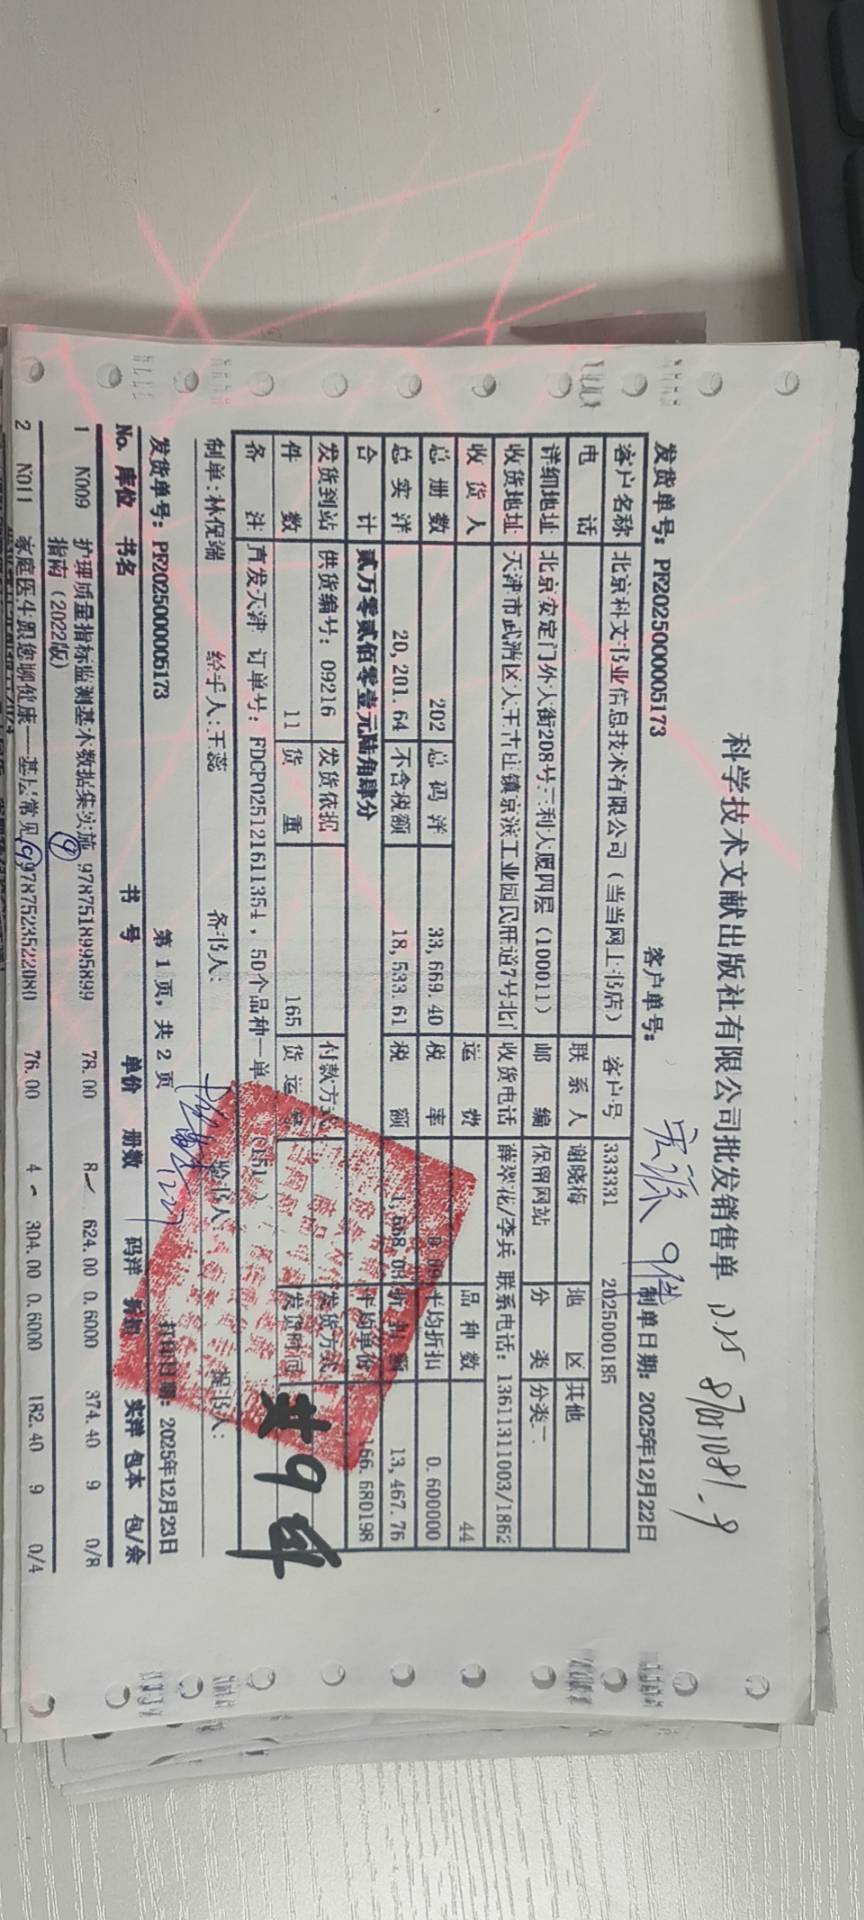 科学技术文献出版社有限公司批发销售单
发货单号: PF2025000005173 客户单号: 制单日期: 2025年12月22日
客户名称 北京科文书业信息技术有限公司（当当网上书店） 客户号 333331 2025000185
电 话 联系人 谢晓梅 地 区 其他
详细地址 北京安定门外大街208号三利大厦四层（100011） 邮 编 保留网站 分 类 分类二
收货地址 天津市武清区大王古庄镇京滨工业园民旺道7号北门 收货电话 薛翠花/李兵 联系电话: 13611311003/1862
收 货 人 运 费 品 种 数 44
总 册 数 202 总 码 洋 33,669.40 税 率 平均折扣 0.600000
总 实 洋 20,201.64 不含税额 18,533.61 税 额 1,668.03 折 扣 额 13,467.76
合 计 贰万零贰佰零壹元陆角肆分 平均单价 166.680198
发货到站 供货编号: 09216 发货依据 付款方式 发货方式
件 数 11 货 重 165 货 运 发货时间
备 注 直发天津 订单号: FDCP02512161135, 50个品种一单
共9件
制单: 林保瑞 经手人: 王蕊 备书人: 验书人: 提书人:
发货单号: PF2025000005173 第 1 页, 共 2 页 打印日期: 2025年12月23日
No. 库位 书名 书 号 单价 册数 码洋 折扣 实洋 包本 包/余
1 N009 护理质量指标监测基本数据集实施 9787518995899 78.00 8 624.00 0.6000 374.40 9 0/8
指南（2022版） ⑨
2 N011 家庭医生跟您聊健康——基层常见 ⑨ 9787523522080 76.00 4 304.00 0.6000 182.40 9 0/4